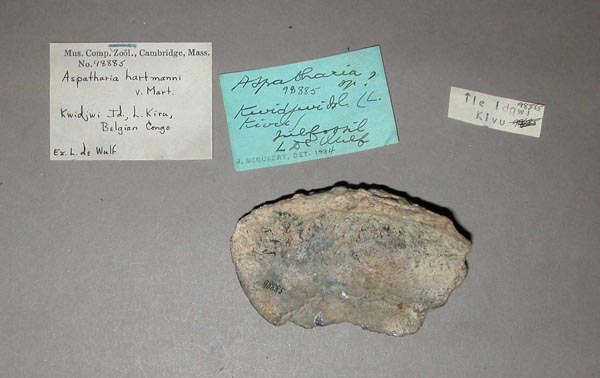 Mus. Comp. Zoöl., Cambridge, Mass.
No. 98885
Aspatharia hartmanni
v. Mart.
Kwidjwi Id., L. Kivu,
Belgian Congo
Ex. L. de Wulf
Aspatharia
sp. ?
98885
Kwidjwi Id. (L.
Kivu)
subfossil
L. De Wulf
J. BEQUAERT, DET. 1934
98885
Ile Idjwi
Kivu
98885